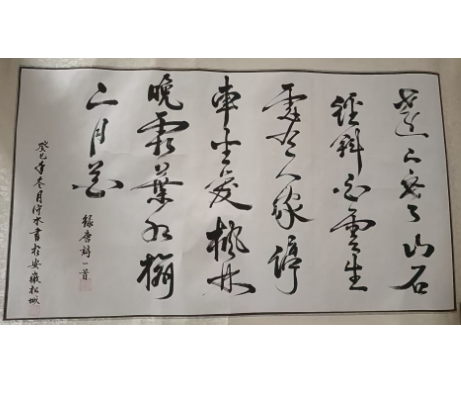 遠上寒山石
徑斜白雲生
處人家停
車坐愛楓林
晚霜葉紅於
二月花
錄唐詩一首
癸巳年冬月水書於安徽松城